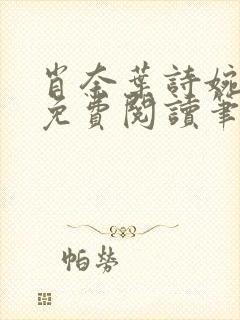 肖奈葉詩婉
免費閱讀筆
帕勞